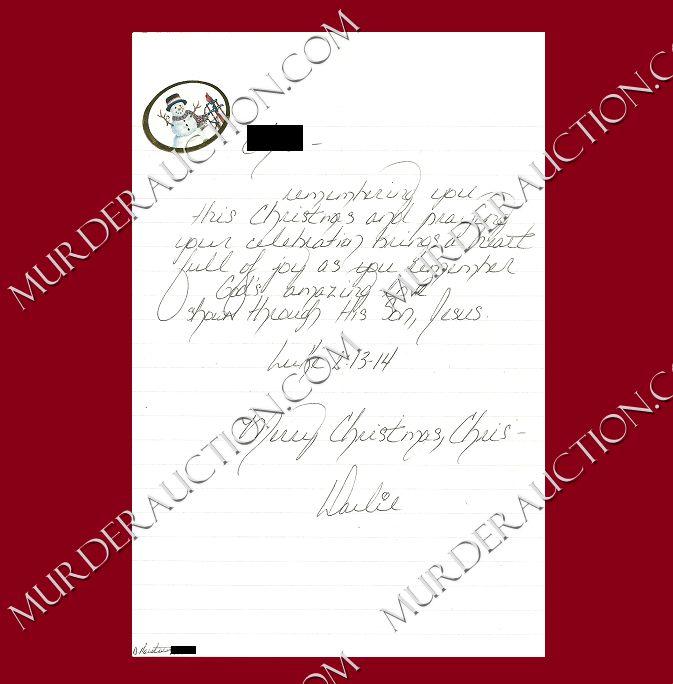 remembering you
this Christmas and praying
your celebration brings a heart
full of joy as you remember
God's amazing love
shown through His Son, Jesus.
Luke 2:13-14
Merry Christmas, Chris-
Darlie
MURDERAUCTION.COM
MURDERAUCTION.COM
MURDERAUCTION.COM
MURDERAUCTION.COM
MURDERAUCTION.COM
MURDERAUCTION.COM